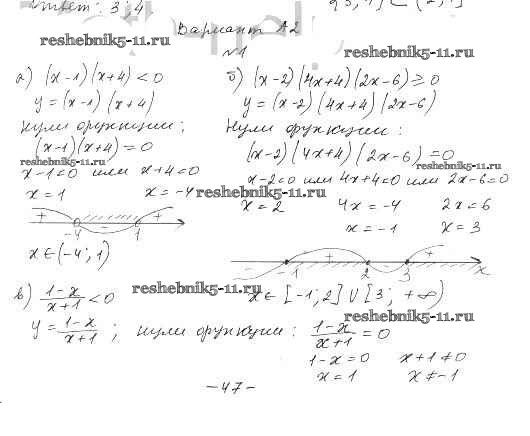 Ответ: 3; 4
Вариант А2
reshebnik5-11.ru
reshebnik5-11.ru
№1
а) (x-1)(x+4)<0
y=(x-1)(x+4)
Нули функции;
(x-1)(x+4)=0
reshebnik5-11.ru
x-1=0 или x+4=0
x=1 x=-4
+ - +
-4 1
x∈(-4; 1)
б) (x-2)(4x+4)(2x-6)≥0
y=(x-2)(4x+4)(2x-6)
Нули функции:
(x-2)(4x+4)(2x-6)=0
reshebnik5-11.ru
x-2=0 или 4x+4=0 или 2x-6=0
reshebnik5-11.ru
x=2 4x=-4 2x=6
x=-1 x=3
- + - +
-1 2 3 x
x∈[-1;2]∪[3; +∞)
reshebnik5-11.ru
reshebnik5-11.ru
в) (1-x)/(x+1)<0
y=(1-x)/(x+1); нули функции: (1-x)/(x+1)=0
1-x=0 x+1≠0
x=1 x≠-1
-47-